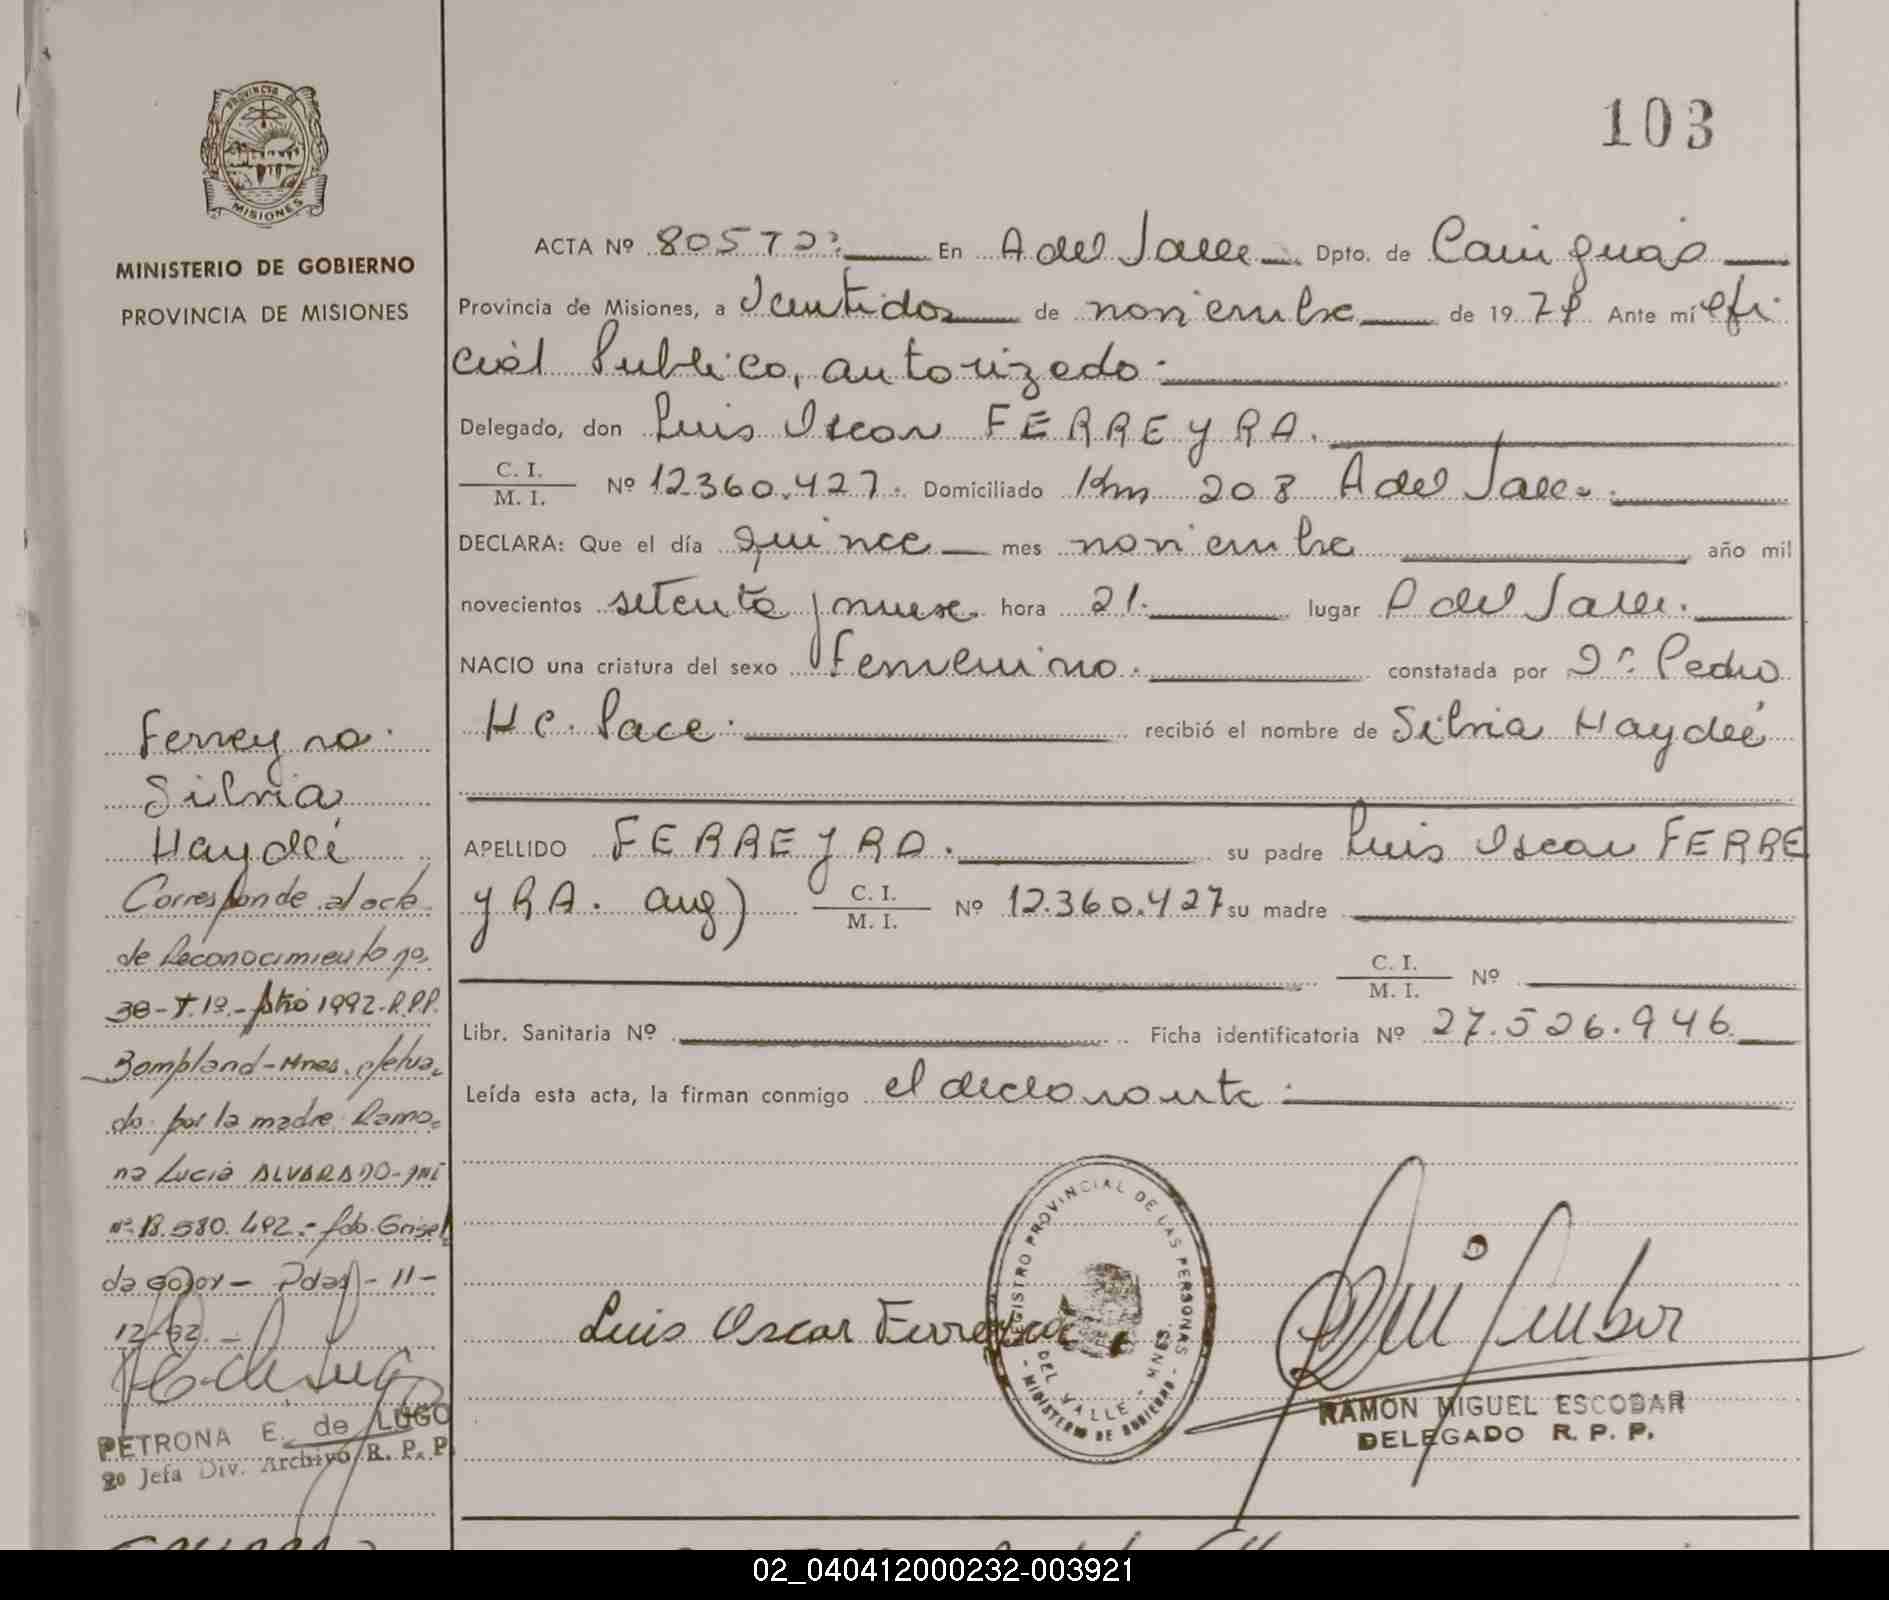 103
PROVINCIA DE
MISIONES
MINISTERIO DE GOBIERNO
PROVINCIA DE MISIONES
ACTA Nº En A del Valle Dpto. de Cainguás
Provincia de Misiones, a Veintidos de noviembre de 1979 Ante mí ofi
cial Publico, autorizado.
Delegado, don Luis Oscar FERREYRA.
C. I.
M. I. Nº 12.360.427. Domiciliado Km 208 A del Valle.
DECLARA: Que el día quince mes noviembre año mil
novecientos setenta y nueve hora 21. lugar A del Valle.
NACIO una criatura del sexo femenino. constatada por Dr. Pedro
Hc. Pace. recibió el nombre de Silvia Haydeé
APELLIDO FERREYRA. su padre Luis Oscar FERRE
YRA. arg) C. I.
M. I. Nº 12.360.427 su madre
C. I.
M. I. Nº
Libr. Sanitaria Nº Ficha identificatoria Nº 27.526.946
Leída esta acta, la firman conmigo el declarante.
Ferreyra.
Silvia
Haydeé
Corresponde al acta
de Reconocimiento no.
38-T.1º.-Año 1992-R.P.P.
Bompland-Mnes. efetua.
do por la madre Ramo.
na Lucia ALVARADO-
580.492.- fdo. Grisel
da - Pdas - 11 -
12-92.-
PETRONA E. de LUGO
2º Jefa Div. Archivo R. P. P
Luis Oscar Ferreyra
REGISTRO PROVINCIAL DE LAS PERSONAS
DEL VALLE - MNES.
- MINISTERIO DE GOBIERNO -
RAMON MIGUEL ESCOBAR
DELEGADO R. P. P.
02_040412000232-003921